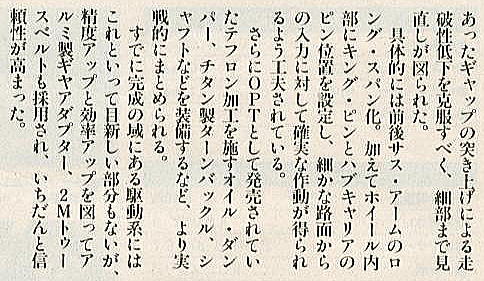 あったギャップの突き上げによる走
破性低下を克服すべく、細部まで見
直しが図られた。
具体的には前後サス・アームのロ
ング・スパン化。加えてホイール内
部にキング・ピンとハブキャリアの
ピン位置を設定し、細かな路面から
の入力に対して確実な作動が得られ
るよう工夫されている。
さらにOPTとして発売されてい
たテフロン加工を施すオイル・ダン
パー、チタン製ターンバックル、シ
ャフトなどを装備するなど、より実
戦的にまとめられる。
すでに完成の域にある駆動系には
これといって目新しい部分もないが、
精度アップと効率アップを図ってア
ルミ製ギヤアダプター、2Mトゥー
スベルトも採用され、いちだんと信
頼性が高まった。